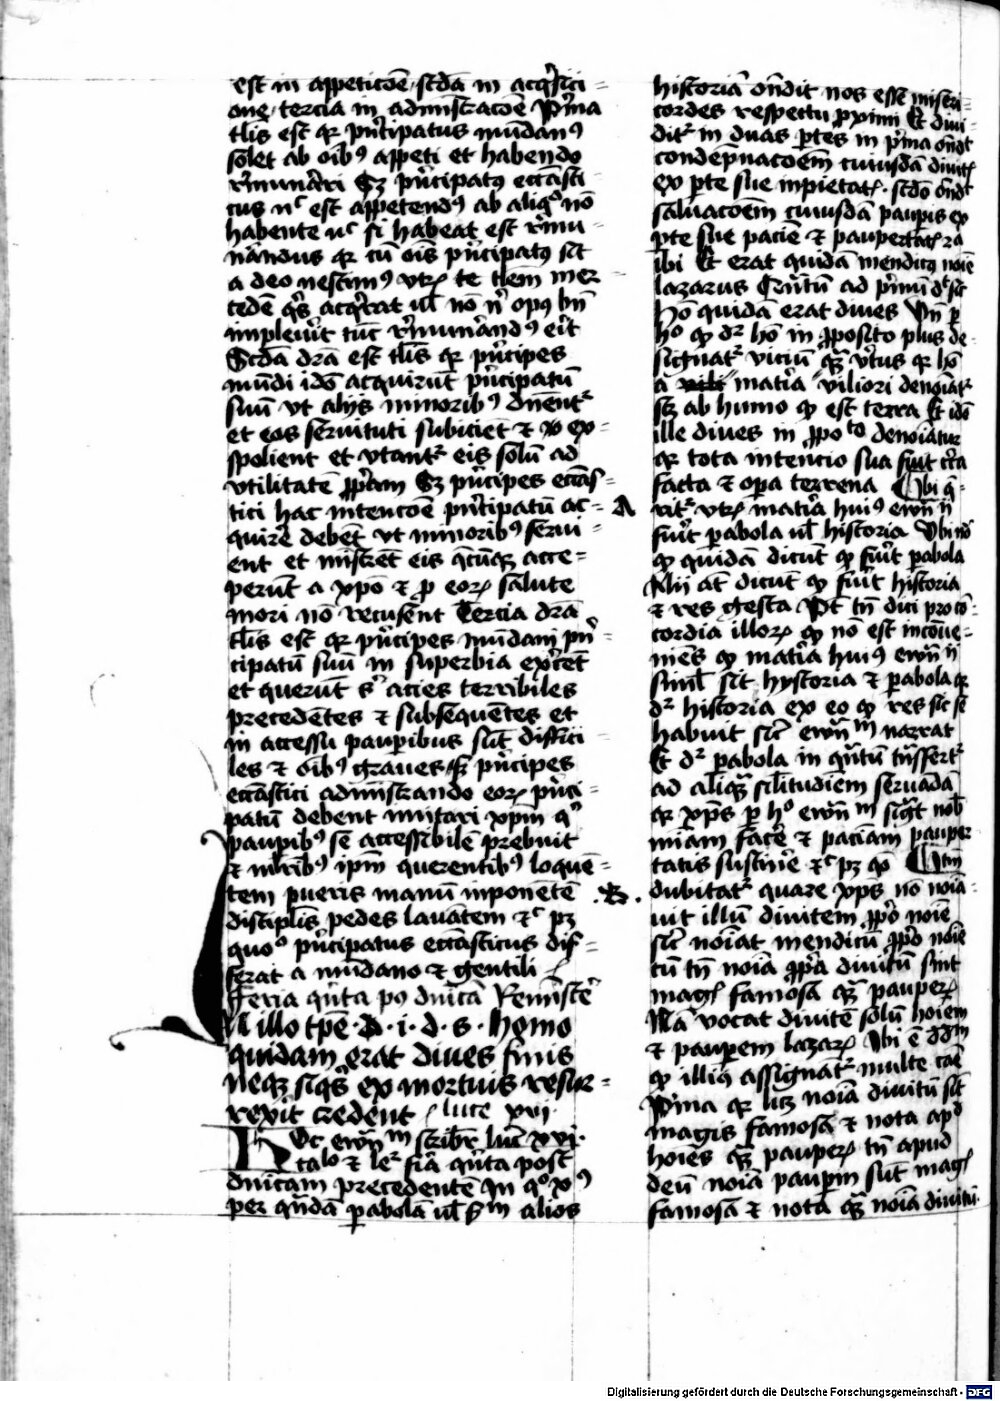 est in appeticōe · scd̄a in acq̇sici
one · tercia in admīstracōe P̄ma
tlis est qr p̄ncipatus mūdanꝰ
solet ab oībꝰ appeti et habendo
cus nᶜ est appetendꝰ ab aliqᵒ nō
habente nᶜ si habeat est
nādus qr cū oīs p̄ncipatꝰ sit
a deo nescimꝰ vtꝝ te tlem mer
cedē
impleuit tūc rēmunerandꝰ erit
Scd̄a dr̄a est tlis qr p̄ncipes
mūdi idō acquirūt p̄ncipatū
suū vt alijs minoribꝰ dn̄entᷣ
et eos seruituti subiciēt ⁊ ex
spolient et vtantᷣ eis solū ad
vtilitatē p̄pam Sꝫ p̄ncipes eccās
tici hac intencōe p̄ncipatū ac
quirē debēt vt minoribꝰ serui
ent et mīstrēt eis acce
perūt a xp̄o ⁊ ꝓ eoꝝ salute
mori nō recusent Tercia dr̄a
tlis est qr p̄ncipes mūdani pn̄
cipatū suū in superbia exercēt
et querūt sᷣ acies terribiles
precedētes ⁊ subsequētes et
in accessu paupibus sūt difficī
les ⁊ oībꝰ graues sꝫ p̄ncipes
eccāstici admīstrando eoꝝ p̄nci
patū debent imitari xp̄m qᷤ
paupibꝰ se accessibilē prebuit
⁊ mlr̄ibꝰ ip̄m querentibꝰ loquē
tem pueris manū inponētē
discipl̄is pedes lauātem ⁊ᶜ pꝫ
quoᵒ p̄ncipatus eccāsticus dif
ferat a mūdano ⁊ gentili
Feria qn̄ta pꝰ dn̄icā Remīscēre
In illo tp̄e · d · i · d · s · homo
quidam erat diues finis
neqꝫ siqͥs ex mortuis resur
rexit credent luce xvi
Hoc ewn̄ᵐ scribitr luc̄ xvi ·
talᵒ ⁊ leᷣ fīa qn̄ta post
dn̄icam precedentē In qᵒ xꝰ
per qn̄dā pabolā ul̄ alios
historiā on̄dit nos esse miseri
cordes respectu pximi Et diui
ditᷣ in duas p̄tes in p̄ma on̄dit
condēpnacōem cuiusdā diuitꝭ
ex p̄te sue inpietatꝭ · scdō on̄dit
saluacōem cuiusdā paupis ex
pte sue paciē ⁊ paupertatꝭ
ibi Et erat quidā mendicꝰ noīe
lazarus Qn̄tū ad p̄mū dᷣ sic
Hō quidā erat diues Vn̄ p
hᵒ qꝫ dᷣ hō in p̄posito plus de
signatᷣ viciū qᷓ v̄tus qr hō
a mat̄ia viliori denoīatᷣ
scꝫ ab humo qꝫ est terra Et idō
ille diues in ꝓpoᵗᵒ denoīatur
qr tota intencio sua fuit cr̄ca
facta ⁊ opa terrena Ubi q̄
ritᷣ vtꝝ mat̄ia huiꝰ ewn̄ n̄
fuit pabola ul̄ historia Ubi nō
qꝫ quidā dicūt qꝫ fuit pabola
Alij āt dicūt qꝫ fuit historia
⁊ res gesta Pt̄ tn̄ dici pro cō
cordia illoꝝ qꝫ nō est incōue
niēs qꝫ mat̄ia huiꝰ ewn̄ n̄
simul sit hystoria ⁊ pabola qr
dᷣ historia ex eo qꝫ res sic se
habuit sic̄ ewn̄ᵐ narrat
Et dᷣ pabola in qn̄tū tn̄sfertᷣ
ad aliqᷓ sil̄itudiem seruādā
qr xp̄s p hᵒ ewn̄ᵐ sign̄t nob̄
miam facē ⁊ paciam pauper
tatis sustinē ⁊ᶜ pꝫ qō Itm̄
dubitatᷣ quare xp̄s nō noīa
uit illū diuitem p̄p̄o noīe
sic̄ noīat mendicū p̄p̄o noīe
cū tn̄ noīa p̄p̄a diuitū sint
magꝭ famosa qᷓ pauperꝝ
Nā vocat diuitē solū hoīem
⁊ pauperem lazarꝝ Ubi ē dd̄m
qꝫ illiꝰ assignātᷣ multe cāe
P̄ma qr licꝫ noīa diuitū sīt
magis famosa ⁊ nota apᵈ
hoīes qᷓ pauperꝝ tn̄ apud
deū noīa paupm sūt magꝭ
famosa ⁊ nota qᷓ noīa diuitū
A
B
Digitalisierung gefördert durch die Deutsche Forschungsgemeinschaft - DFG